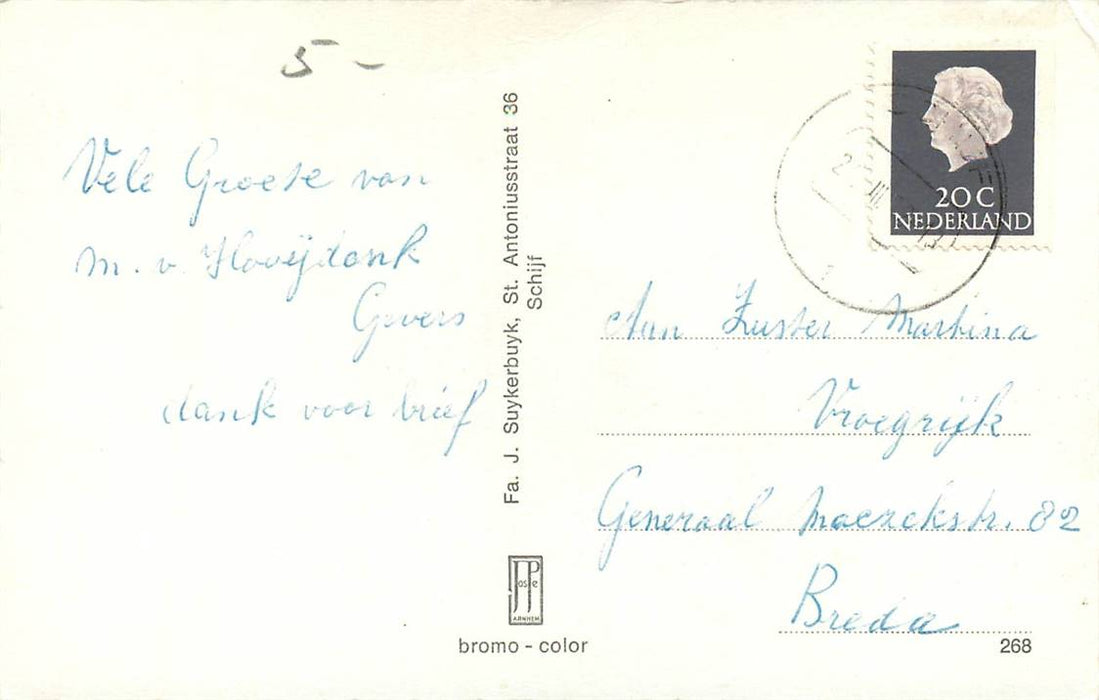 5-
Vele Groete van
m. v. Hooijdonk
Gevers
dank voor brief
Fa. J. Suykerbuyk, St. Antoniusstraat 36
Schijf
JosPe
ARNHEM
bromo - color
20 C
NEDERLAND
Aan Zuster Martina
Vroegrijk
Generaal Maczekstr. 82
Breda
268